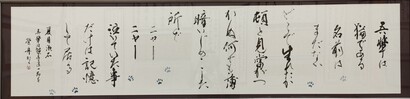 吾輩は
猫である
名前は
まだ無い
どこで生れたか
頓と見當がつ
かぬ何でも薄
暗いじめじめした
所で
ニャー
ニャー
泣いて居た事
だけは記憶
して居る
夏目漱石
吾輩は猫である